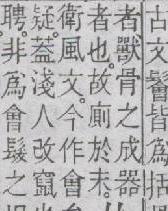 古文鬠皆為括
者獸骨之成器
者也。故廁於末。
衛風文。今作會
疑蓋淺人改竄
聘。非為會髮之